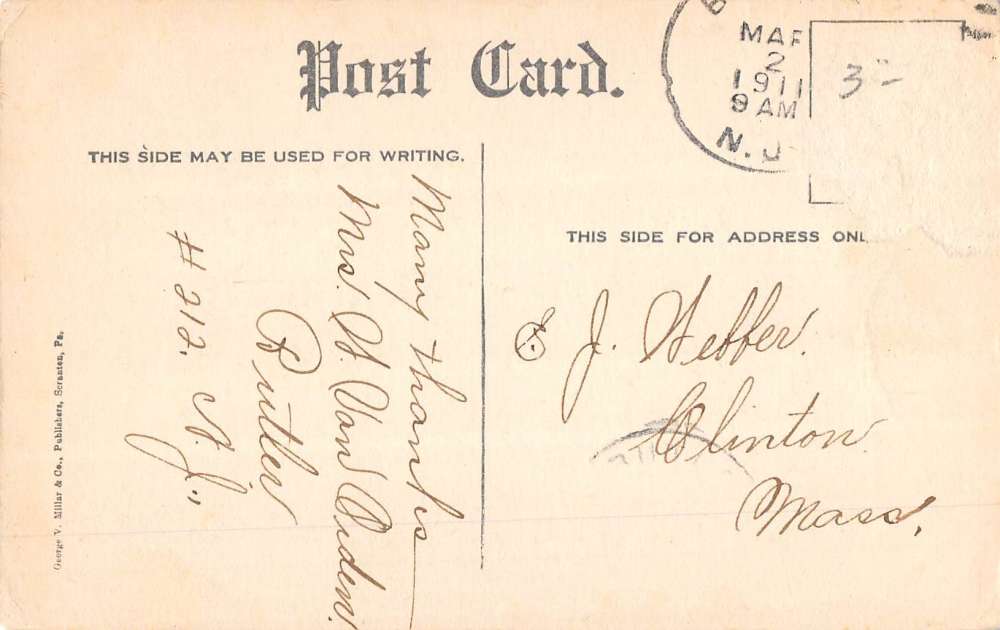 Post Card.
MAR
2
1911
8 AM
N.J.
3⁰⁰
THIS SIDE MAY BE USED FOR WRITING.
THIS SIDE FOR ADDRESS ONL
Many thanks
Mrs. H. Van Riden.
Butler
# 212. N. J.,
E. J. Webber.
Clinton
Mass.
George V. Millar & Co., Publishers, Scranton, Pa.